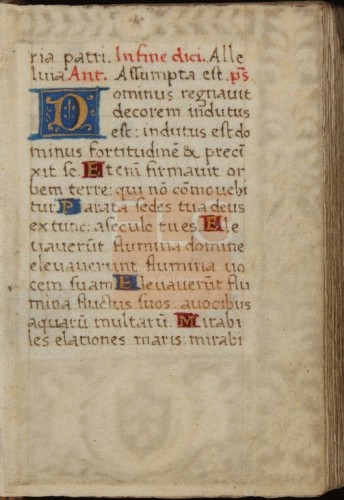 ria patri. In fine dici. Alle
luia Ant. Assumpta est. ps̄
Dominus regnavit
decorem indutus
est: indutus est do
minus fortitudinē & precī
xit se. Etenī firmavit or
bem terre: qui nō cōmovebi
tur. Parata sedes tua deus
ex tunc: a seculo tu es. Ele
vaverūt flumina domine
elevaverunt flumina vo
cem suam. Elevaverūt flu
mina fluctus suos. a vocibus
aquarū multarū. Mirabi
les elationes maris: mirabi